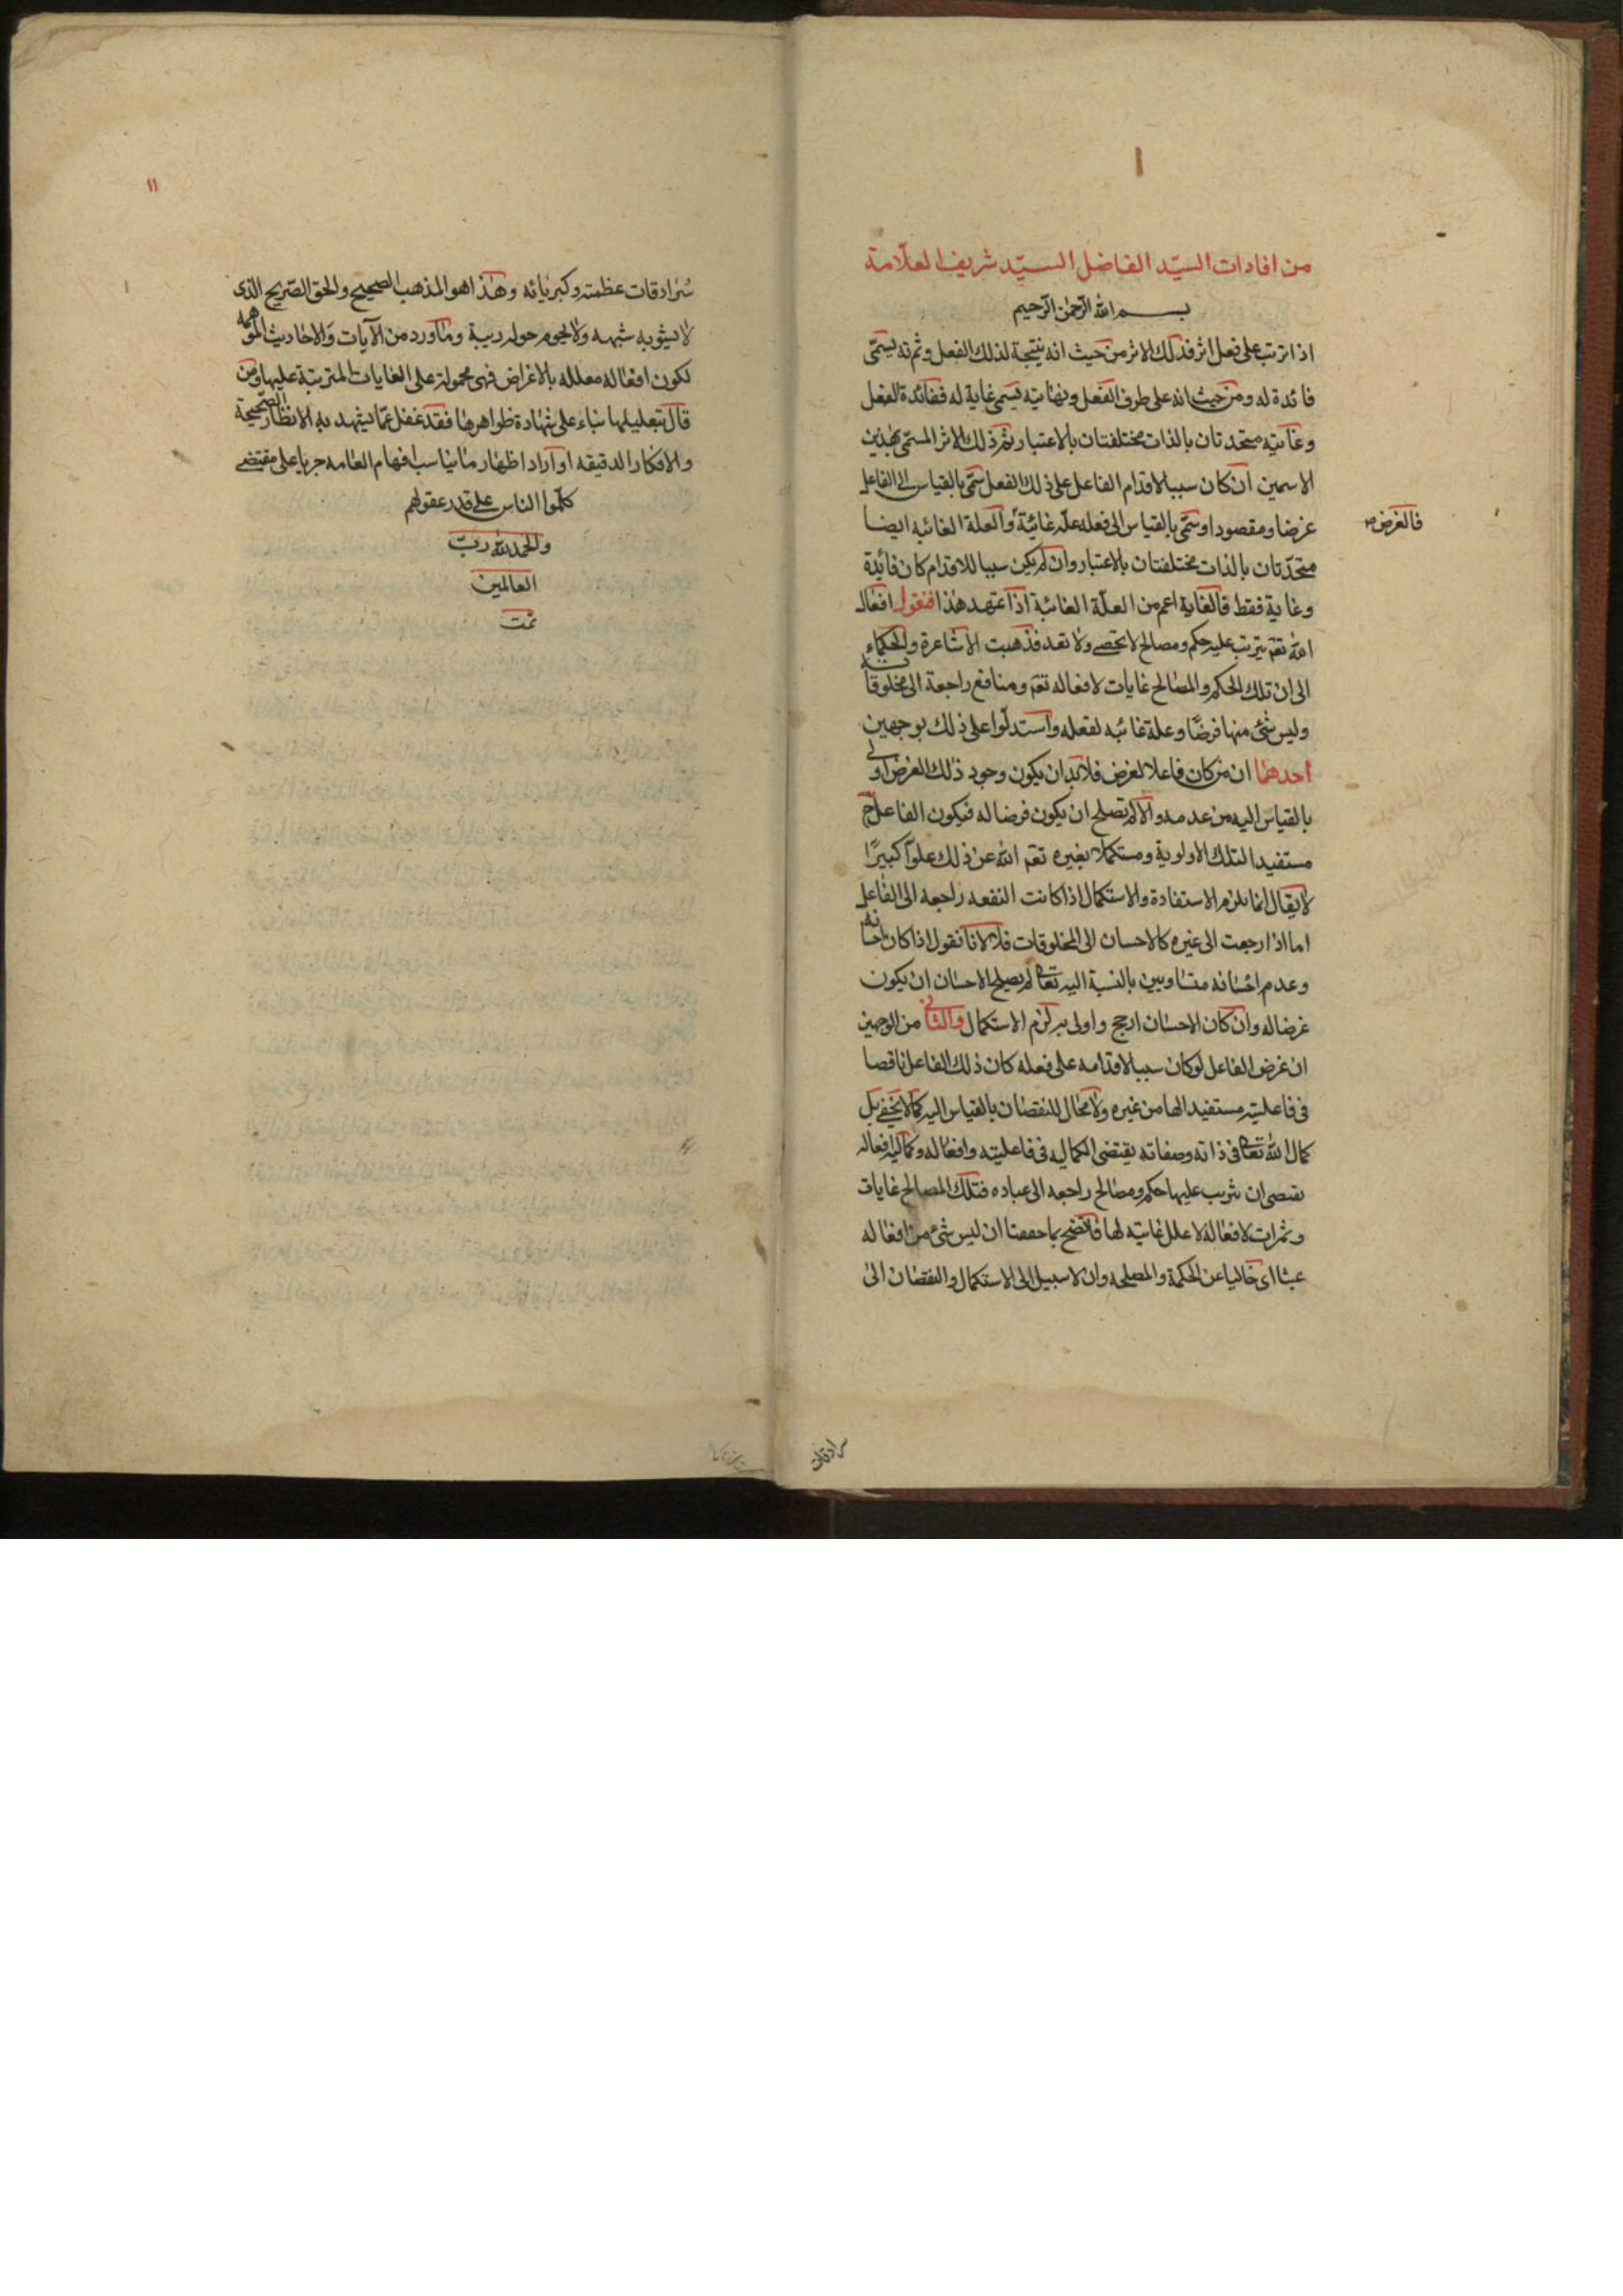 من افادات السيّد الفاضل السيّد شريف العلّامة
بسم الله الرّحمن الرّحيم
اذا ترتب على فعل اثر فذلك الاثر من حيث انه نتيجة لذلك الفعل وثمرته يسمّى
فائدة له ومن حيث انه على طرف الفعل ونهايته يسمى غاية له ففائدة الفعل
وغايته متحدتان بالذات مختلفتان بالاعتبار ثم ذلك الاثر المسمى بهذين
الاسمين ان كان سببا لاقدام الفاعل على ذلك الفعل سمّى بالقياس الى الفاعل
غرضا ومقصودا وسمّى بالقياس الى فعله علّة غائيّة والعلة الغائيه ايضا
فالغرض
متحدّتان بالذات مختلفتان بالاعتبار وان لم يكن سببا للاقدام كان فائدة
وغاية فقط فالغاية اعم من العلّة الغائية اذا تمهد هذا فنقول افعال
الله تعم يترتب عليه حكم ومصالح لا تحصى ولا تعد فذهبت الاشاعرة والحكماء
الى ان تلك الحكم والمصالح غايات لافعاله تعم ومنافع راجعة الى مخلوقاته
وليس شئ منها غرضًا وعلة غائيه لفعله واستدلّوا على ذلك بوجهين
احدهما ان من كان فاعلا لغرض فلا بد ان يكون وجود ذلك الغرض اولى
بالقياس اليه من عدمه والا لم تصلح ان يكون غرضا له فيكون الفاعل ح
مستفيدا لتلك الاولوية ومستكملا بغيره تعم الله عن ذلك علوّا كبيرًا
لا يقال انما يلزم الاستفادة والاستكمال اذا كانت النفعه راجعه الى الفاعل
اما اذا رجعت الى غيره كالاحسان الى المخلوقات فلا لانا نقول اذا كان احسانه
وعدم احسانه متساويين بالنسبة اليه تعالى لم يصلح الاحسان ان يكون
غرضا له وان كان الاحسان ارجح واولى به لزم الاستكمال والثانى من الوجهين
ان غرض الفاعل لو كان سببا لاقدامه على فعله كان ذلك الفاعل ناقصا
فى فاعليته مستفيدا لها من غيره ولا مجال للنقصان بالقياس اليه كما لا يخفى بل
كمال الله تعالى فى ذاته وصفاته يقتضى الكماليه فى فاعليته وافعاله وكمالية افعاله
يقتضى ان يترتب عليها حكم ومصالح راجعه الى عباده فتلك المصالح غايات
وثمرات لافعاله لا علل غائية لها فاتضح بما حققنا ان ليس شئ من افعاله
عبثا اى خاليا عن الحكمة والمصلحه وان لا سبيل الى الاستكمال والنقصان الى
سرادقات
١١
سُرادقات عظمته وكبريائه وهذا هو المذهب الصحيح والحق الصّريح الذى
لا يشوبه شبهه ولا يحوم حوله ريبة وما ورد من الآيات والاحاديث الموهمه
لكون افعاله معلله بالاغراض فهى محمولة على الغايات المترتبة عليها ومن
قال بتعليلها بناء على شهادة ظواهرها فقد غفل عمّا يشهد به الانظار الصّحيحة
والافكار الدقيقه او اراد اظهار ما يناسب افهام العامه جريا على مقتضى
كلّموا الناس على قدر عقولهم
والحمد لله ربّ
العالمين
تمت